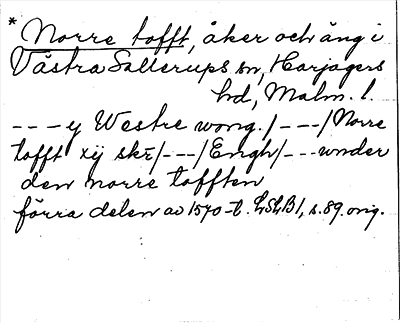 * Norre tofft, åker och äng i
Västra Sallerups sn, Harjagers
hd, Malm. l.
---y Westre wong./---/Norre
tofft xij skr̄/---/Engh/---wnder
den norre tofften
förra delen av 1570-t. LSLB1, s.89. orig.